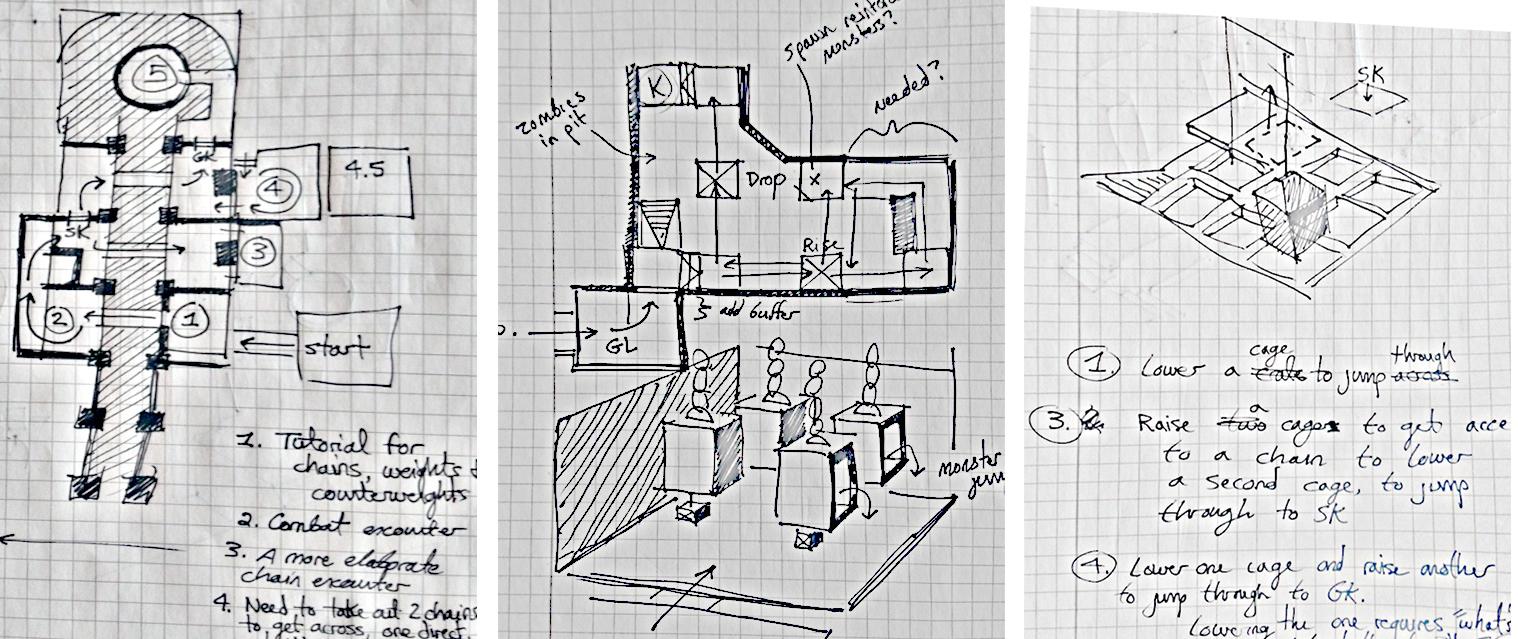 5
GK
4
4.5
SK
3
2
1
start
1. Tutorial for
chains, weights
counterweights
2. Combat encounter
3. A more elaborate
chain encounter
4. Need to take out 2 chains
to get across, one direct.
spawn
monsters?
needed?
zombies
in pit
K
Drop
x
Rise
add buffer
GL
monster
SK
1. Lower a cage to jump through
3. Raise a cage to get acce
to a chain to lower
a second cage, to jump
through to SK
4. Lower one cage and raise another
to jump through to GK.
Lowering the one requires "what's